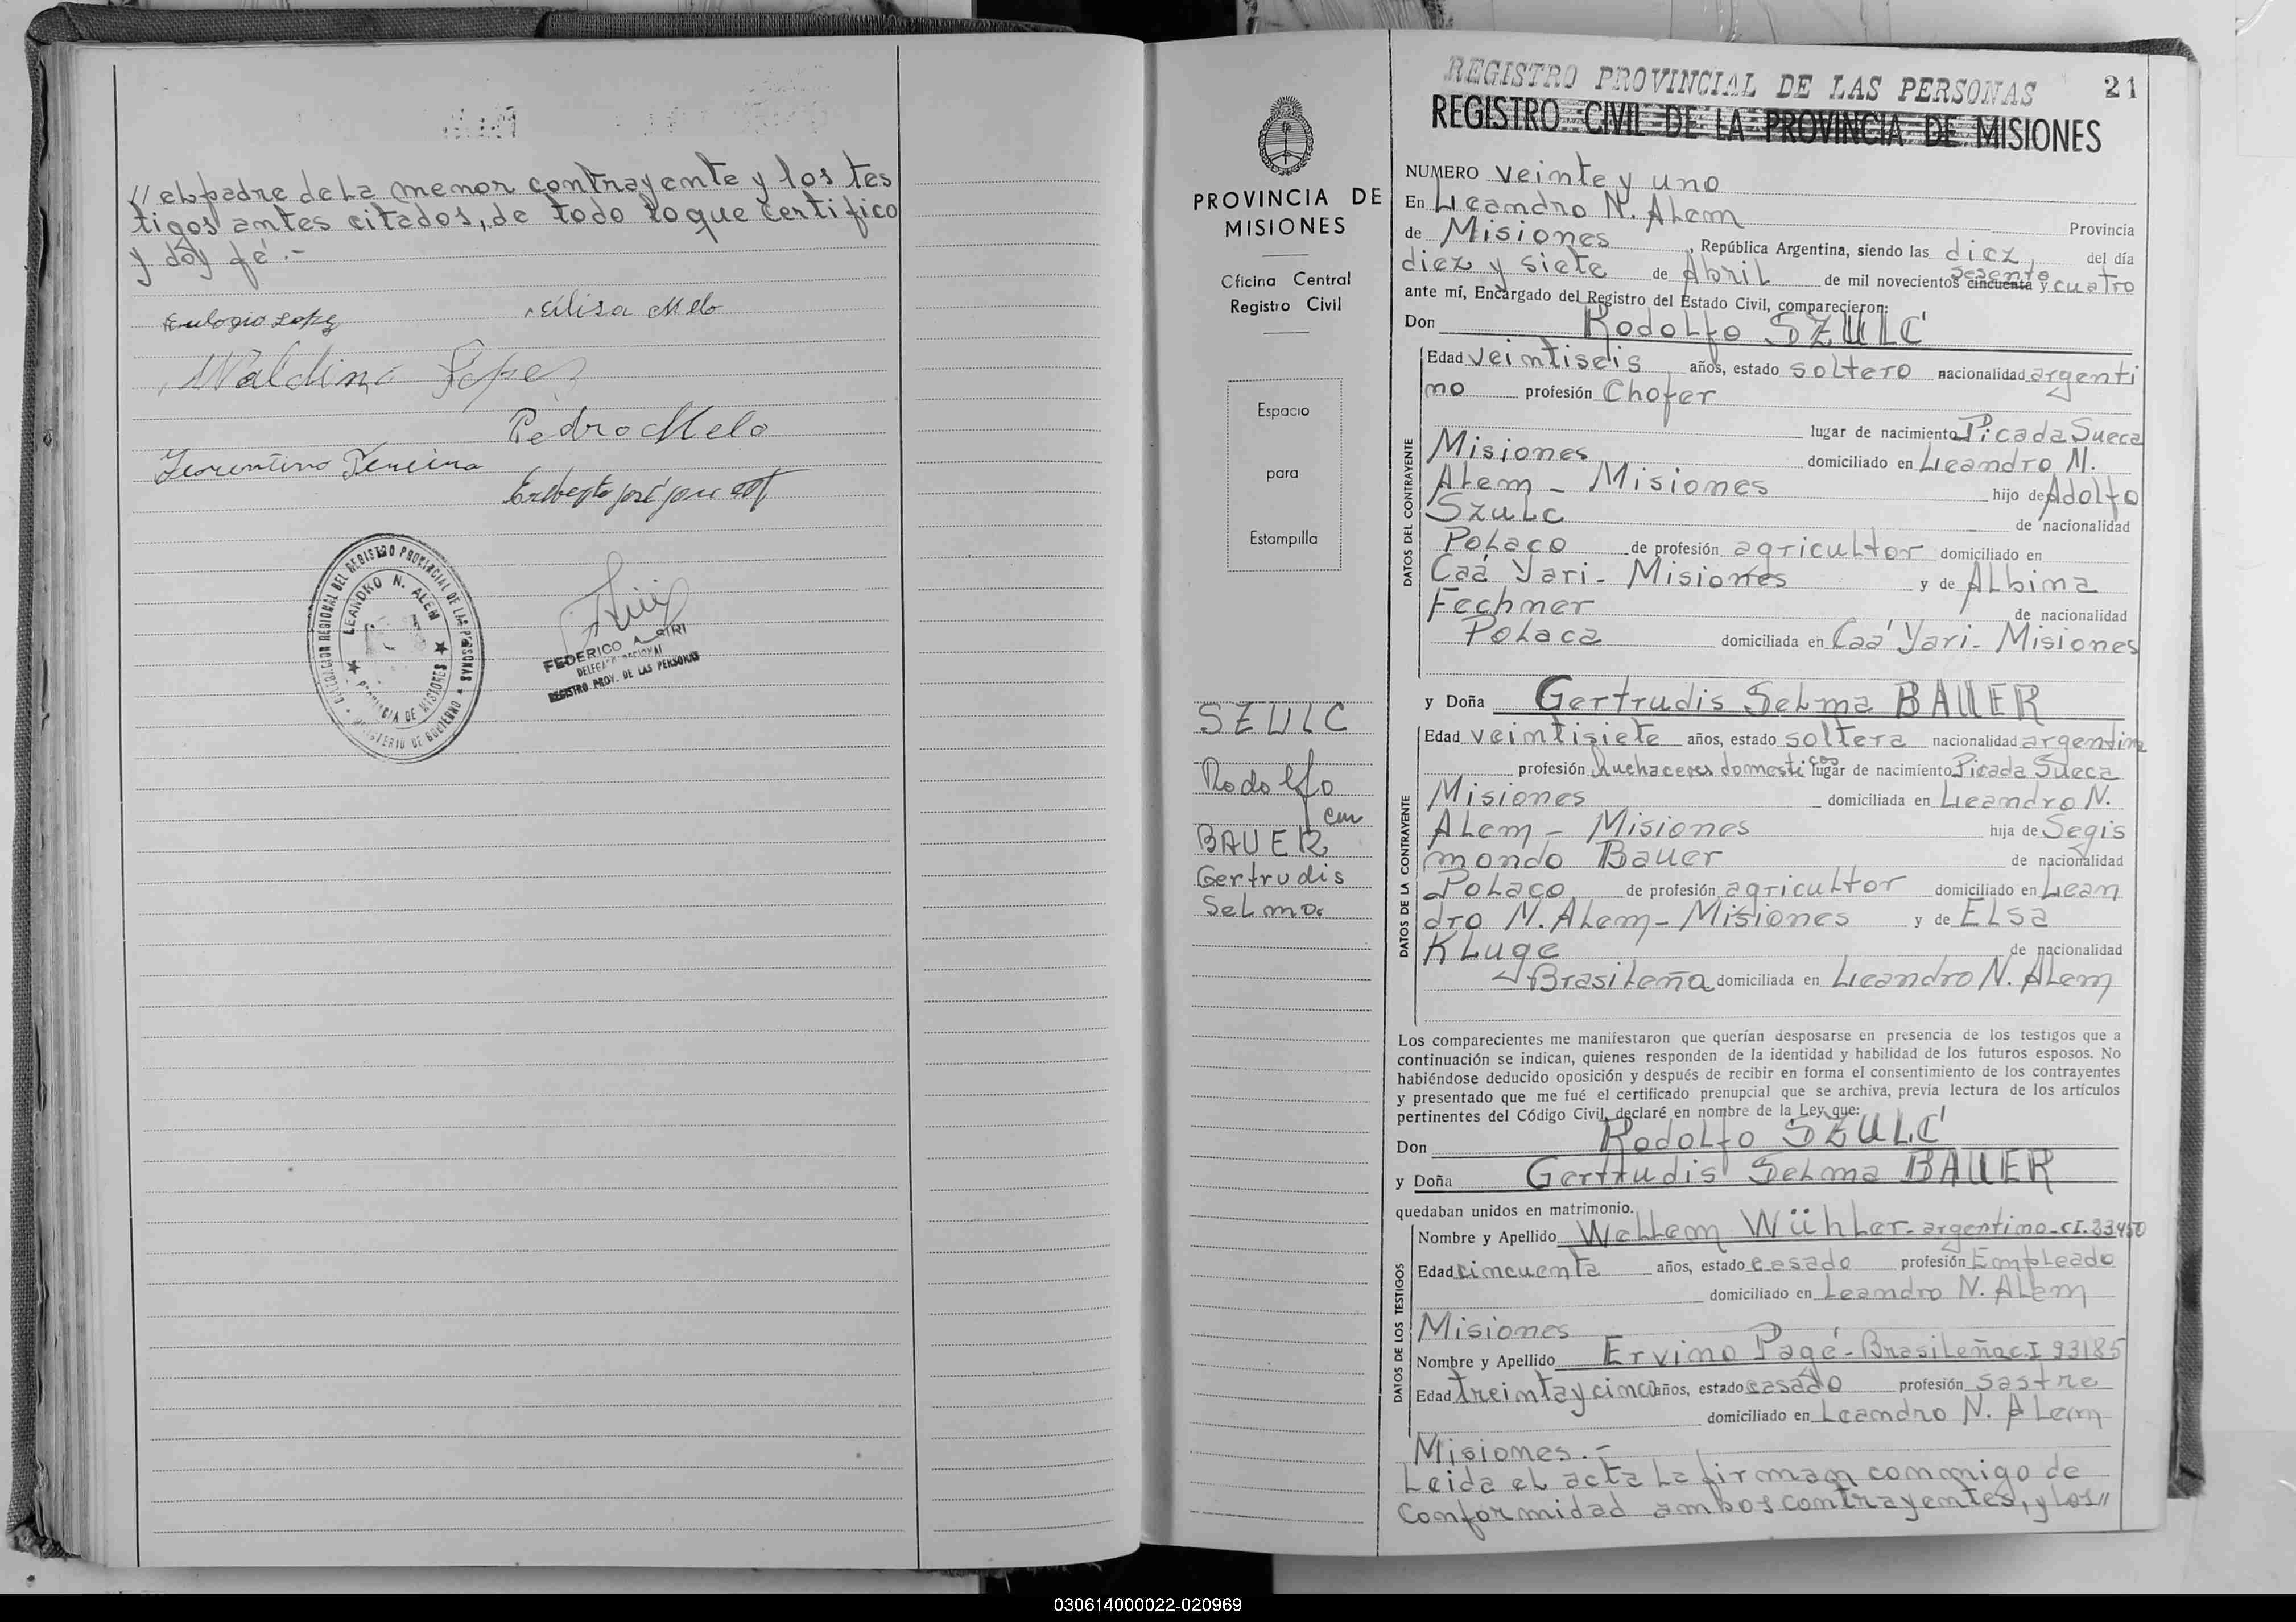 // el padre de la menor contrayente y los tes
tigos antes citados, de todo lo que certifico
y doy fé.-
Eulogio Lopez
Elisa Melo
Waldina Lopez
Pedro Melo
Pereira
DELEGACION REGIONAL DEL REGISTRO PROVINCIAL DE LAS PERSONAS
LEANDRO N. ALEM
PROVINCIA DE MISIONES
MINISTERIO DE GOBIERNO
FEDERICO A.
DELEGADO REGIONAL
REGISTRO PROV. DE LAS PERSONAS
PROVINCIA DE
MISIONES
Oficina Central
Registro Civil
Espacio
para
Estampilla
SZULC
Rodolfo
con
BAUER
Gertrudis
Selma
REGISTRO PROVINCIAL DE LAS PERSONAS 21
REGISTRO CIVIL DE LA PROVINCIA DE MISIONES
NUMERO veinte y uno
En Leandro N. Alem
Provincia
de Misiones, República Argentina, siendo las diez, del día
diez y siete de Abril de mil novecientos cincuenta sesenta y cuatro
ante mí, Encargado del Registro del Estado Civil, comparecieron:
Don Rodolfo SZULC
DATOS DEL CONTRAYENTE
Edad veintiseis años, estado soltero nacionalidad argenti
no profesión Chofer
lugar de nacimiento Picada Sueca
Misiones domiciliado en Leandro N.
Alem - Misiones hijo de Adolfo
Szulc de nacionalidad
Polaco de profesión agricultor domiciliado en
Caá Yari - Misiones y de Albina
Fechner de nacionalidad
Polaca domiciliada en Caá Yari - Misiones
y Doña Gertrudis Selma BAUER
DATOS DE LA CONTRAYENTE
Edad veintisiete años, estado soltera nacionalidad argentina
profesión Quehaceres domesticos lugar de nacimiento Picada Sueca
Misiones domiciliada en Leandro N.
Alem - Misiones hija de Segis
mondo Bauer de nacionalidad
Polaco de profesión agricultor domiciliado en Lean
dro N. Alem - Misiones y de Elsa
Kluge de nacionalidad
Brasileña domiciliada en Leandro N. Alem
Los comparecientes me manifestaron que querían desposarse en presencia de los testigos que a
continuación se indican, quienes responden de la identidad y habilidad de los futuros esposos. No
habiéndose deducido oposición y después de recibir en forma el consentimiento de los contrayentes
y presentado que me fué el certificado prenupcial que se archiva, previa lectura de los artículos
pertinentes del Código Civil, declaré en nombre de la Ley que:
Don Rodolfo SZULC
y Doña Gertrudis Selma BAUER
quedaban unidos en matrimonio.
DATOS DE LOS TESTIGOS
Nombre y Apellido Wellem Wühler - argentino - C.I. 33450
Edad cincuenta años, estado casado profesión Empleado
domiciliado en Leandro N. Alem
Misiones
Nombre y Apellido Ervino Pagé - Brasileña C.I 93185
Edad treinta y cinco años, estado casado profesión sastre
domiciliado en Leandro N. Alem
Misiones.-
Leida el acta la firman conmigo de
Conformidad ambos contrayentes, y los //
030614000022-020969